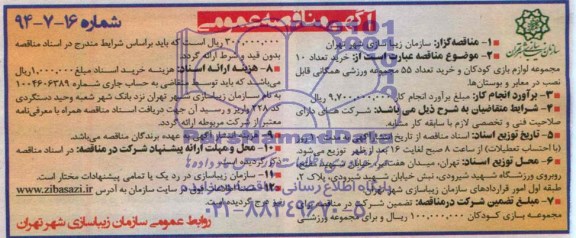 آگهی مناقصه عمومی
شماره ۱۶-۷-۹۴
۱- مناقصه‌گزار: سازمان زیبا سازی شهر تهران
۲- موضوع مناقصه عبارت است از: خرید تعداد ۱۰
مجموعه لوازم بازی کودکان و خرید تعداد ۵۵ مجموعه ورزشی همگانی قابل
نصب در بوستان‌ها.
۳- برآورد انجام کار: مبلغ برآورد انجام کار ۹,۷۰۰,۰۰۰,۰۰۰ ریال
۴- شرایط متقاضیان به شرح ذیل می باشد: شرکت های دارای
صلاحیت فنی و تخصصی لازم با سابقه کار مشابه
۵- تاریخ توزیع اسناد: اسناد مناقصه از تاریخ انتشار آگهی
(با احتساب تعطیلات) از ساعت ۸ صبح لغایت ۱۶ بعد از ظهر توزیع می‌شود.
۶- محل توزیع اسناد: تهران، میدان هفت تیر، خیابان شهید مفتح،
روبروی ورزشگاه شهید شیرودی، نبش خیابان شهید شیرودی، پلاک ۲،
طبقه اول امور قراردادهای سازمان زیباسازی شهر تهران
۷- مبلغ تضمین شرکت درمناقصه: تضمین شرکت در مناقصه برای
مجموعه بازی کودکان ۱۰۰,۰۰۰,۰۰۰ ریال و برای مجموعه ورزشی
۳۰۰,۰۰۰,۰۰۰ ریال است که باید براساس شرایط مندرج در اسناد مناقصه
بدون قید و شرط ارائه گردد.
۸- هزینه ارائه اسناد: هزینه خرید اسناد مبلغ ۱,۰۰۰,۰۰۰ ریال
می‌باشد، که باید توسط متقاضی به حساب جاری شماره ۱۰۰۴۶۰۶۳۸۹
به نام سازمان زیباسازی شهر تهران نزد بانک شهر شعبه وحید دستگردی
کد ۲۳۸ واریز و رسید آن جهت دریافت اسناد مناقصه همراه با معرفی‌نامه
معتبر از شرکت مربوطه ارائه
۹- هزینه انتشار آگهی به عهده برندگان مناقصه می‌باشد.
۱۰- محل و مهلت ارائه پیشنهاد شرکت در مناقصه: در اسناد مناقصه
ذکر گردیده است.
۱۱- سازمان زیباسازی در رد یک یا تمامی پیشنهادات مختار است.
سایت سازمان به آدرس www.zibasazi.ir
نیز درج گردیده است.
روابط عمومی سازمان زیباسازی شهر تهران
ParsNamadData
پایگاه اطلاع رسانی
۰۲۱-۸۸۳۴۹۶۷۰-۵